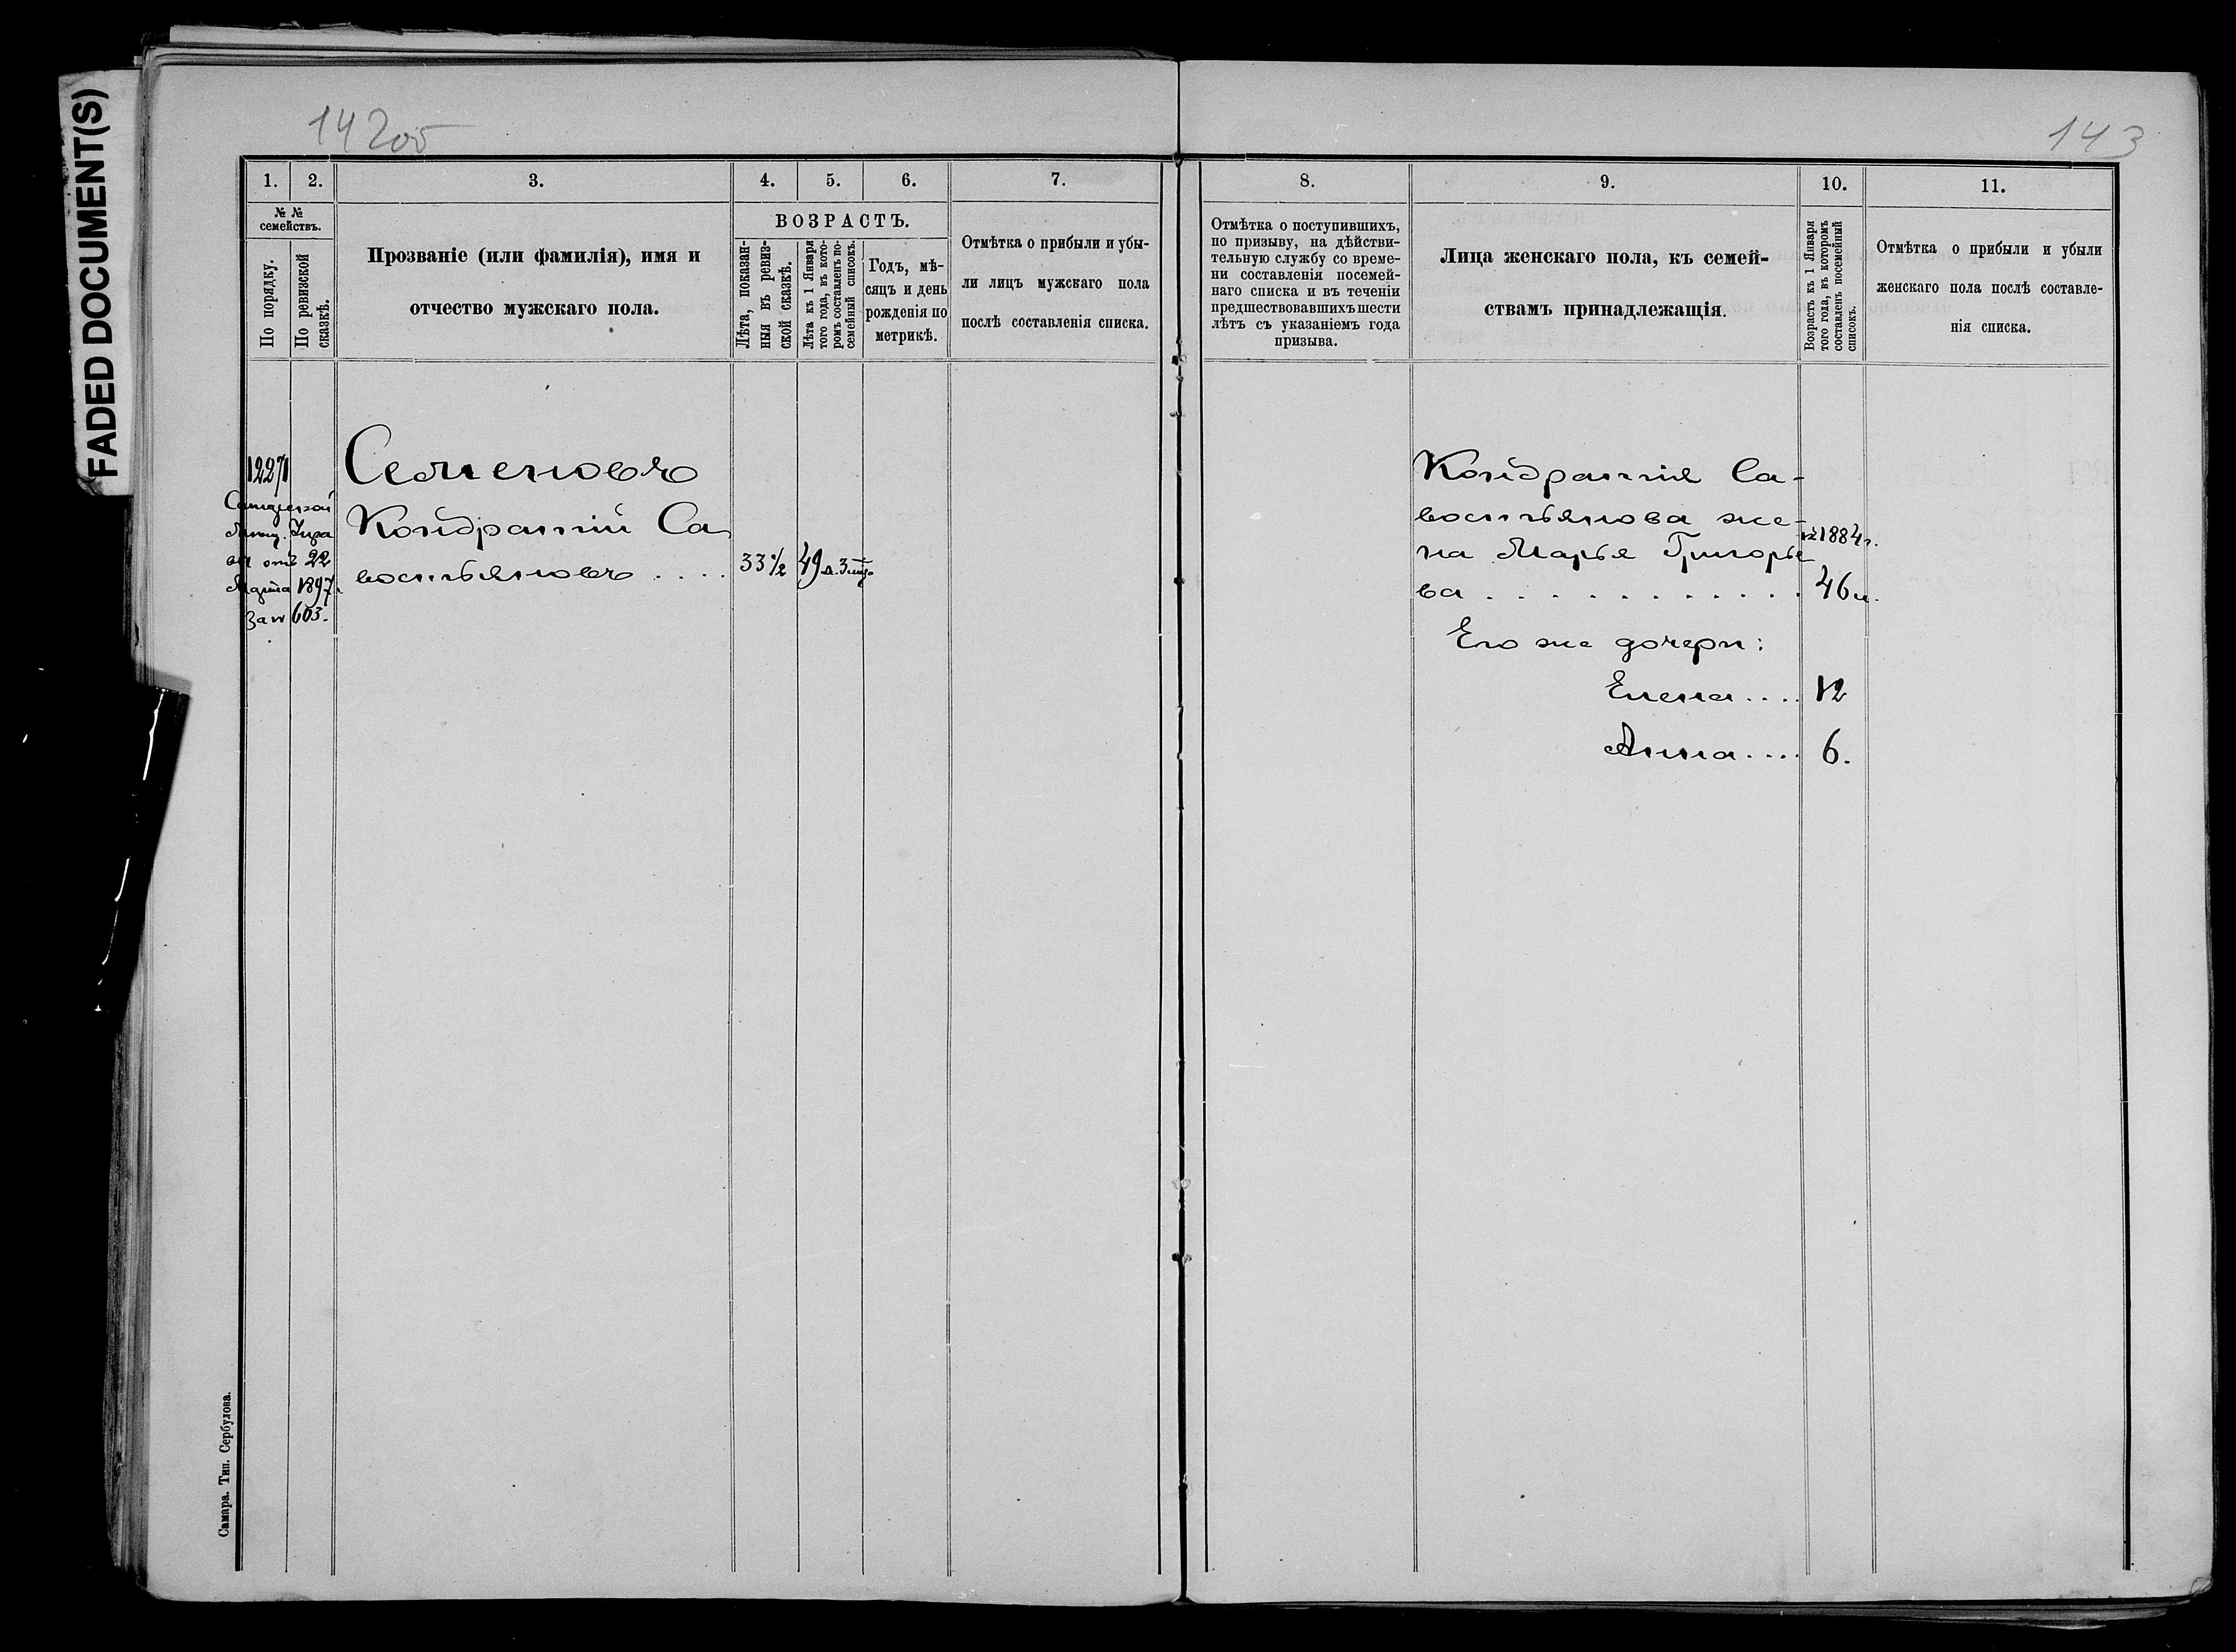 FADED DOCUMENT(S)
142об
143
1.
2.
3.
4.
5.
6.
7.
№ №
семействъ.
По порядку.
По ревизской
сказкѣ.
Прозваніе (или фамилія), имя и
отчество мужскаго пола.
ВОЗРАСТЪ.
Лѣта, показан-
ныя въ ревиз-
ской сказкѣ.
Лѣта къ 1 Января
того года, въ кото-
ромъ составленъ по-
семейный списокъ.
Годъ, мѣ-
сяцъ и день
рожденія по
метрикѣ.
Отмѣтка о прибыли и убы-
ли лицъ мужскаго пола
послѣ составленія списка.
1227
Семеновъ
Кондратій Са
востьяновъ . . . .
33½
49 л. 3 мѣс.
отъ 22
Марта 1897 г.
за № 603.
Самара. Тип. Сербулова.
8.
9.
10.
11.
Отмѣтка о поступившихъ,
по призыву, на дѣйстви-
тельную службу со време-
ни составленія посемей-
наго списка и въ теченіи
предшествовавшихъ шести
лѣтъ съ указаніемъ года
призыва.
Лица женскаго пола, къ семей-
ствамъ принадлежащія.
Возрастъ къ 1 Января
того года, въ которомъ
составленъ посемейный
списокъ.
Отмѣтка о прибыли и убыли
женскаго пола послѣ составле-
нія списка.
Кондратія Са-
востьянова же-
на Марья Григорье
ва . . . . . . . . . . . .
1884 г.
46
Его же дочери:
Елена . . . . 12
Анна . . . . 6.